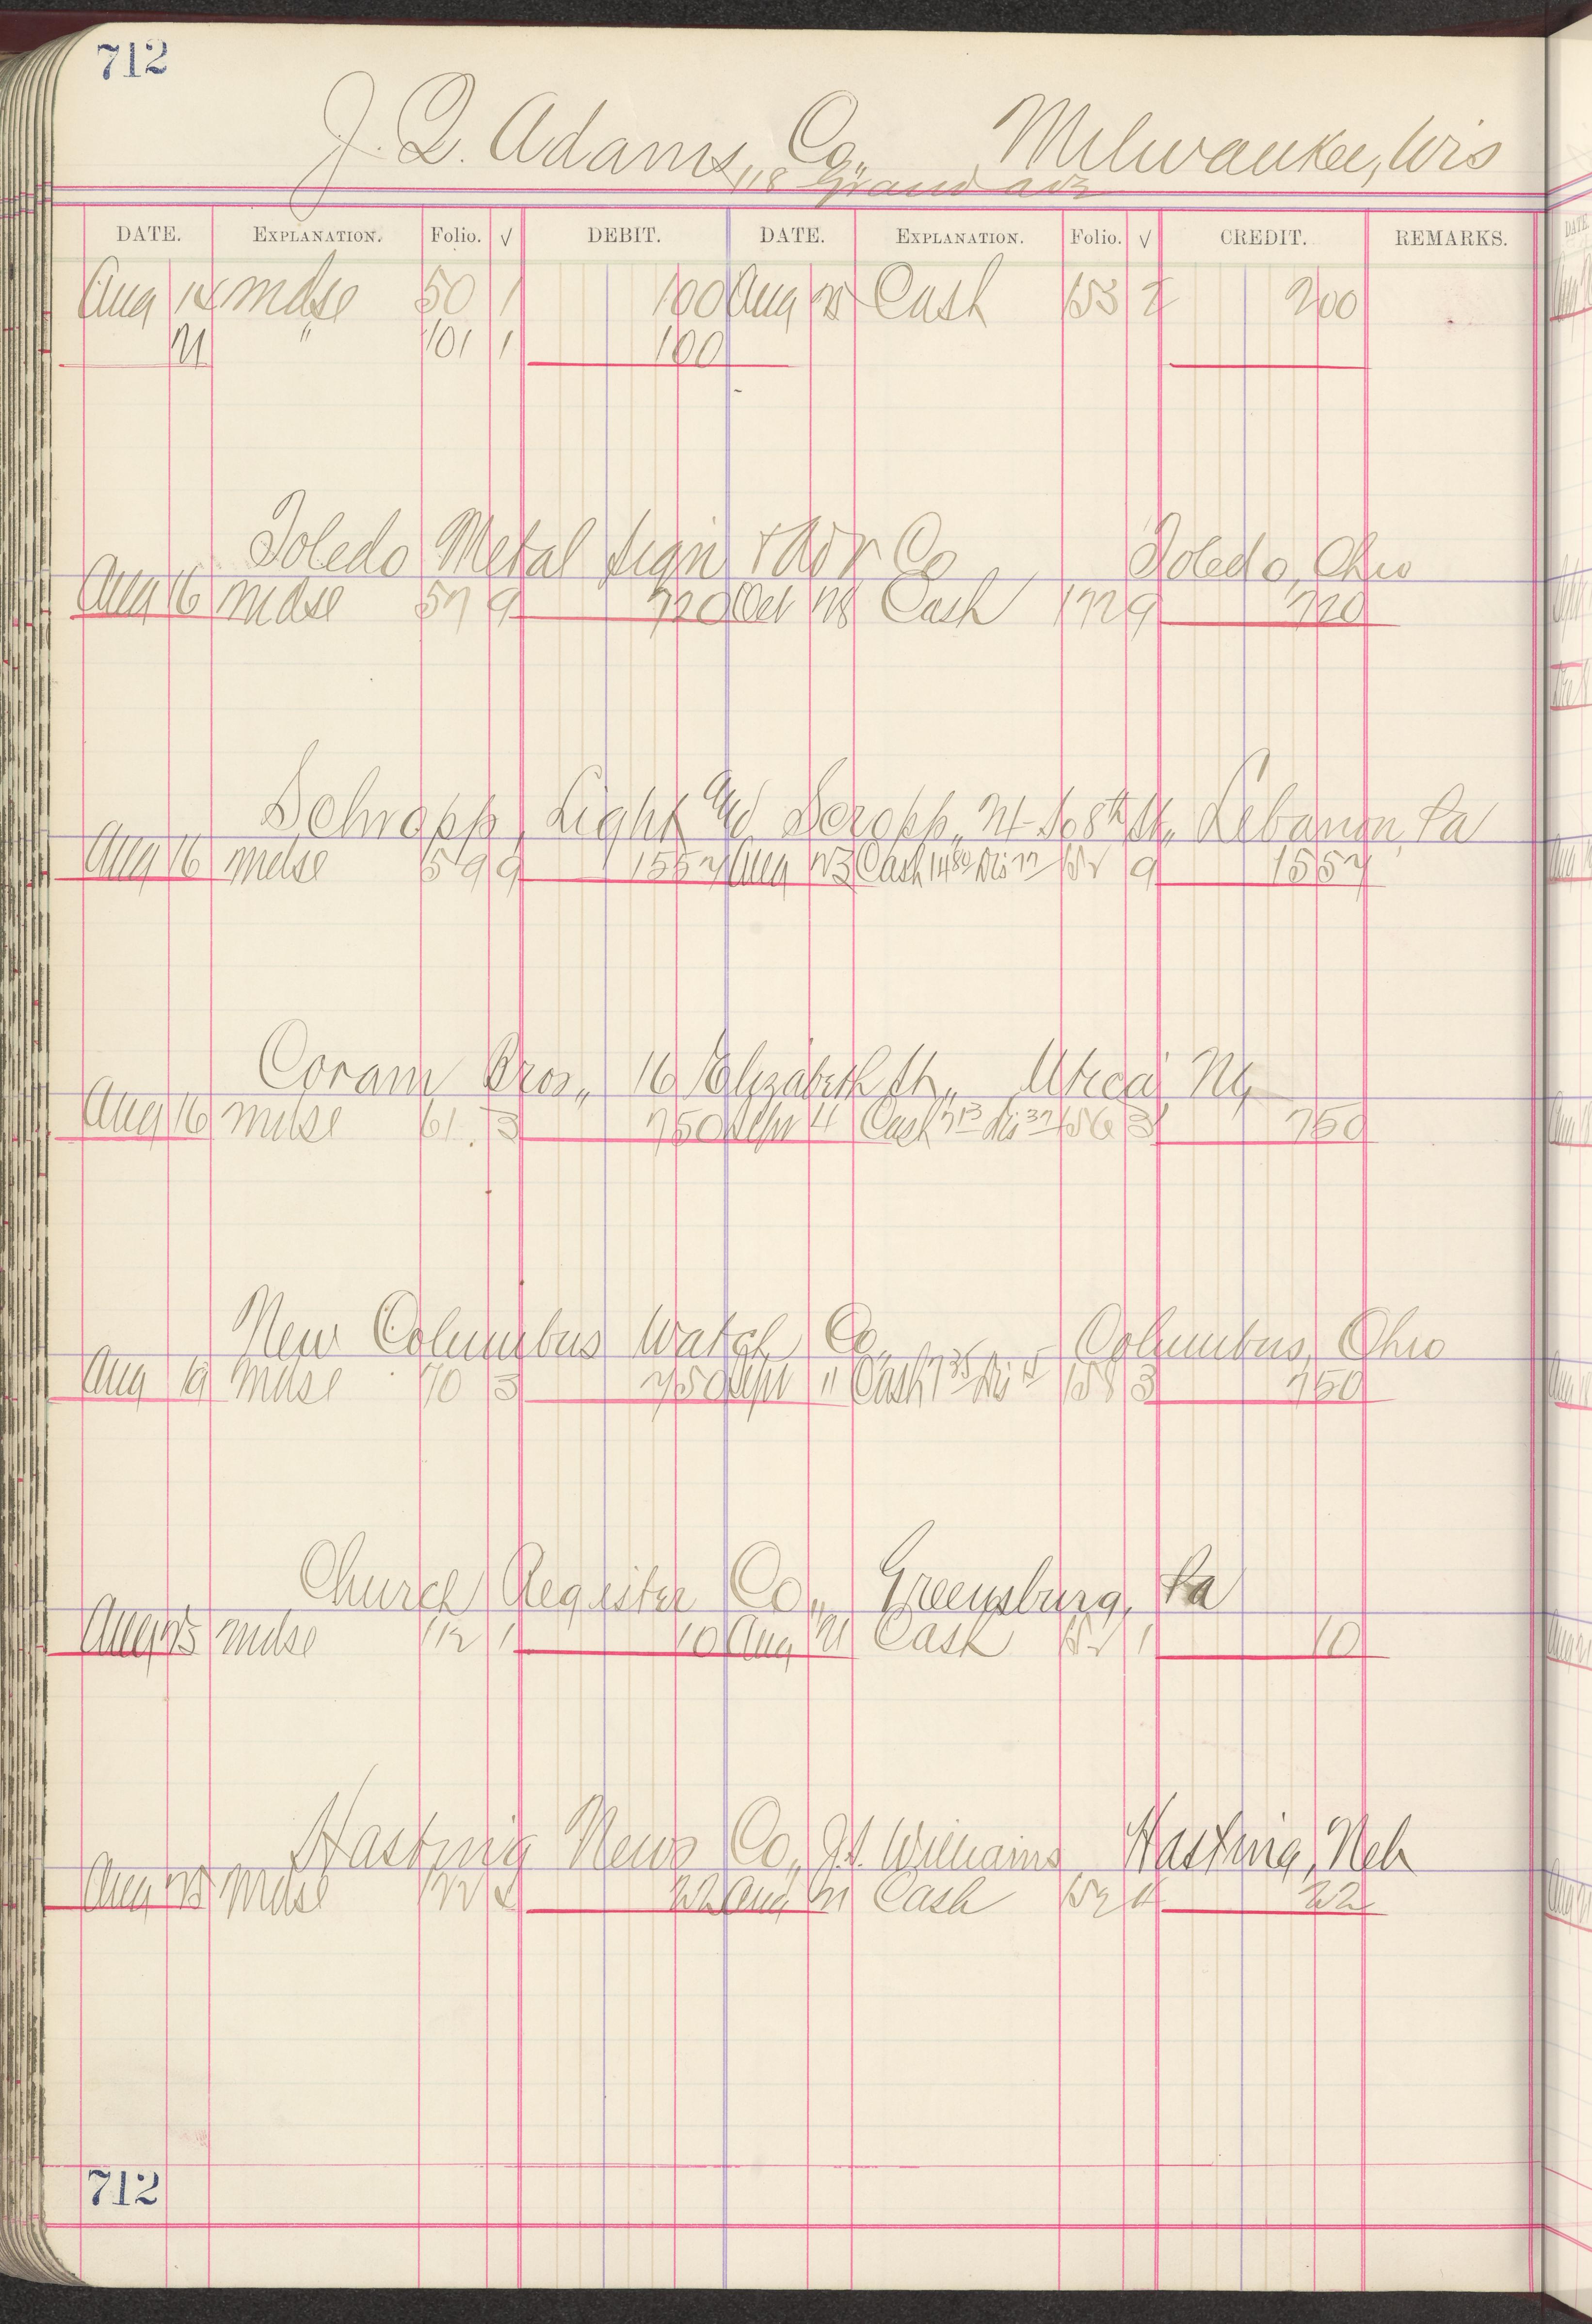 712
J. Q. Adams, Co., Milwaukee, Wis
118 Grand ave
DATE. EXPLANATION. Folio. √ DEBIT. DATE. EXPLANATION. Folio. √ CREDIT. REMARKS.
Aug 14 mdse 50 1 100 Aug 28 Cash 153 2 200
21 " 101 1 100
Toledo Metal Sign & Adv Co Toledo, Ohio
Aug 16 mdse 57 9 720 Oct 28 Cash 172 9 720
Schropp, Light Lebanon, Pa
Aug 16 mdse 59 9 1557 Aug 23 Cash 152 9 1557
Coram Bros., 16 Elizabeth St., Utica, NY
Aug 16 mdse 61 3 750 Sept 4 Cash 7 13 Dis 37 156 3 750
New Columbus Watch Co, Columbus, Ohio
Aug 19 mdse 70 3 750 Sept 11 Cash 158 3 750
Church Register Co., Greensburg, Pa
Aug 25 mdse 112 1 10 Aug 21 Cash 152 1 10
Hasting News Co, Williams Hasting, Neb
Aug 25 mdse 22 Aug 21 Cash 152 22
712